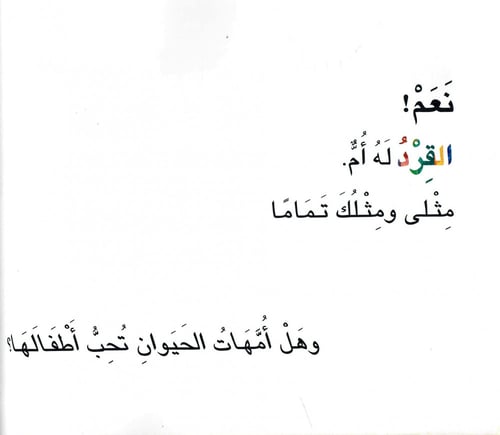 نَعَمْ!
القِرْدُ لَهُ أُمٌّ.
مِثْلى ومِثْلُكَ تَمَامًا
وهَلْ أُمَّهَاتُ الحَيَوانِ تُحِبُّ أَطْفَالَهَا؟